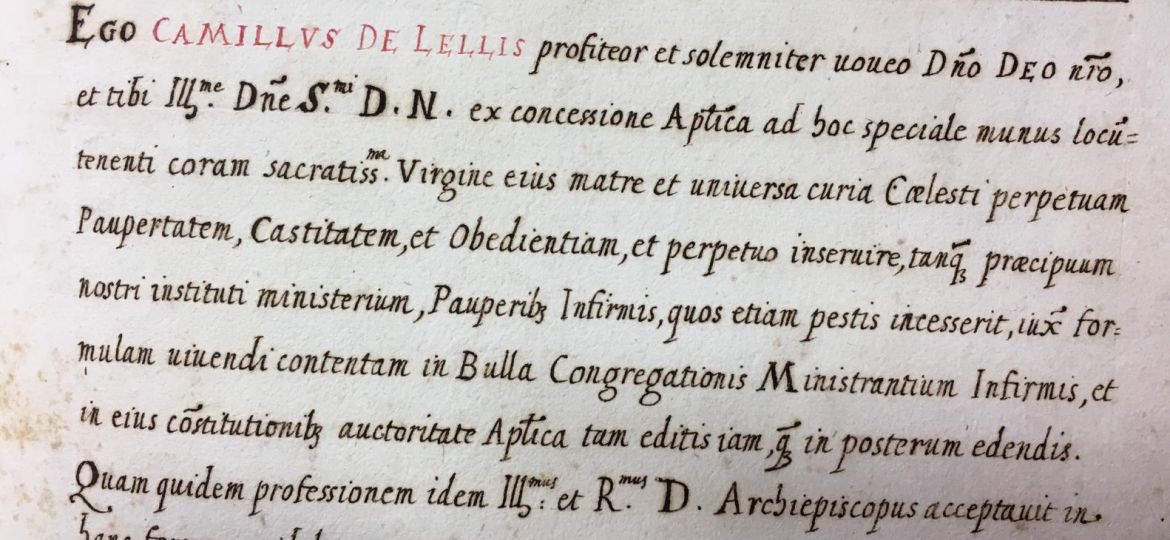 EGO CAMILLVS DE LELLIS profiteor et solemniter uoueo Dño DEO nr̃o,
et tibi Illme. Dñe S.mi D. N. ex concessione Aptĩca ad hoc speciale munus locũ=
tenenti coram sacratissma. Virgine eius matre et uniuersa curia Cœlesti perpetuam
Paupertatem, Castitatem, et Obedientiam, et perpetuo inseruire, tanq̃ꝫ præcipuum
nostri instituti ministerium, Pauperibꝫ Infirmis, quos etiam pestis incesserit, iux̃ for=
mulam uiuendi contentam in Bulla Congregationis Ministrantium Infirmis, et
in eius cõstitutionibꝫ auctoritate Aptĩca tam editis iam, q̃ꝫ in posterum edendis.
Quam quidem professionem idem Illmus: et R.mus D. Archiepiscopus acceptauit in